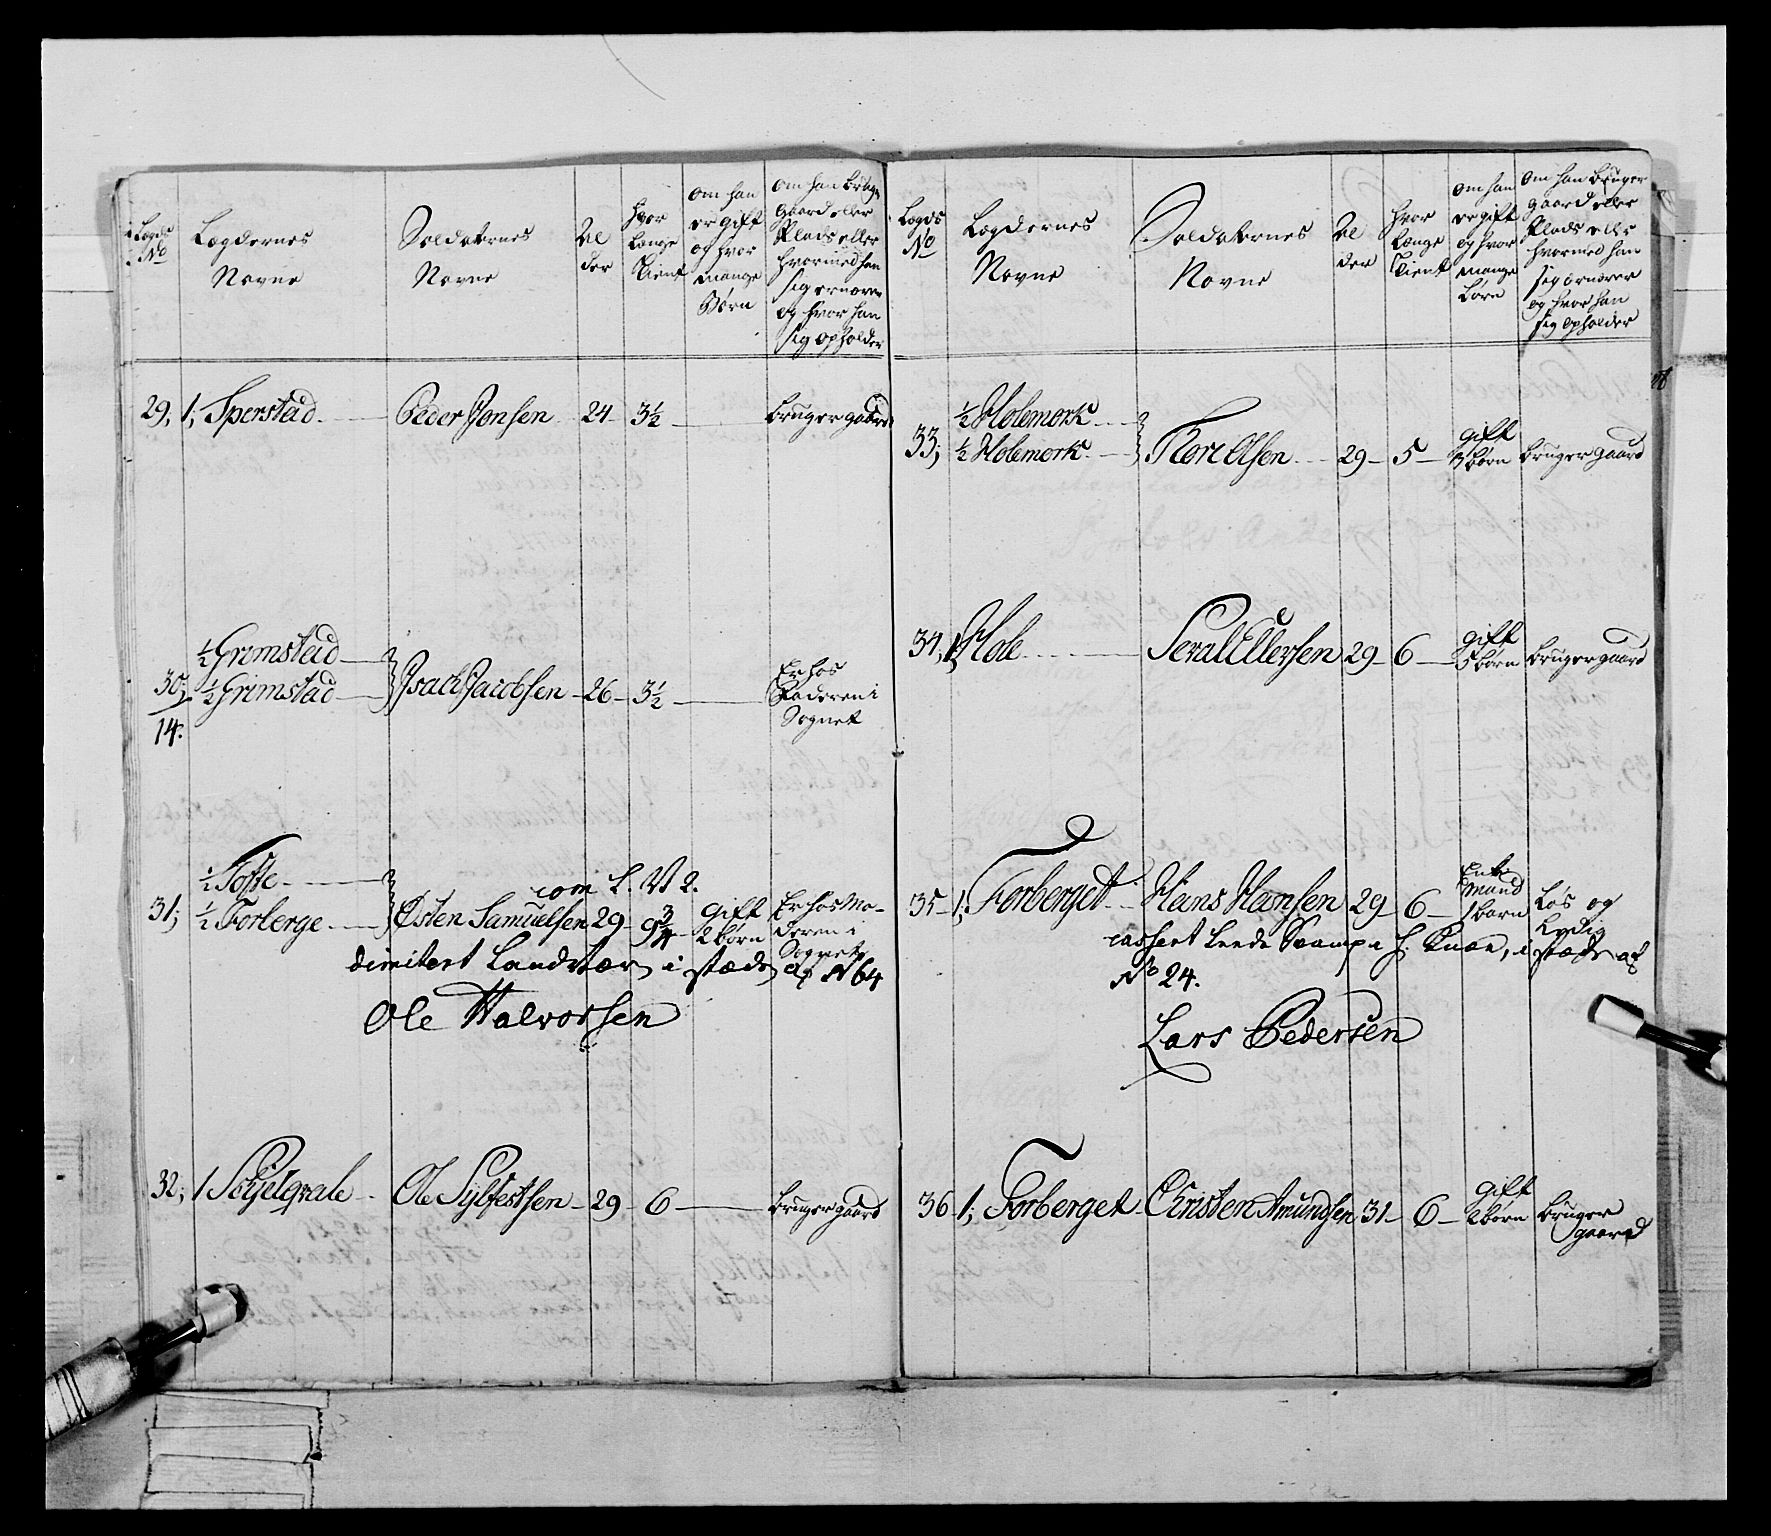 Lægds No
Lægdernes Navne
Soldaternes Navne
Al der
hvor Længe Tient
om han er gift og hvor mange Børn
om han bruger gaard eller Plads eller hvormed han sig ernærer og hvor han sig opholder
29, 1; Sperstad Peder Jonsen 24 3½ bruger gaard
½ Grimstad
30; ½ Grimstad Isach Jacobsen 26 3½ Er hos Faderen i Sognet
14.
½ Tofte
com L. N 2.
31; ½ Forberge Østen Samuelsen 29 9¾ gift 2 børn Er hos Moderen i Sognet
dimitert Landvær i stæde af N 64
Ole Halvorsen
32; 1 Ole Sylfestsen 29 6 bruger gaard
Lægds No
Lægdernes Navne
Soldaternes Navne
Al der
hvor Længe Tient
om han er gift og hvor mange børn
om han bruger gaard eller Plads eller hvormed han sig ernærer og hvor han sig opholder
½ Holemork
33; ½ Holemork Tore Olsen 29 5 gift 3 børn bruger gaard
34, 1 Hole 29 6 gift 5 børn bruger gaard
35 1, Forberget Hans Hansen 29 6 Enke Mand 1 barn Løs og Ledig
cassert i stæde af
No 24.
Lars Pedersen
36 1; Forberget Christen Amundsen 31 6 gift 2 børn bruger gaard